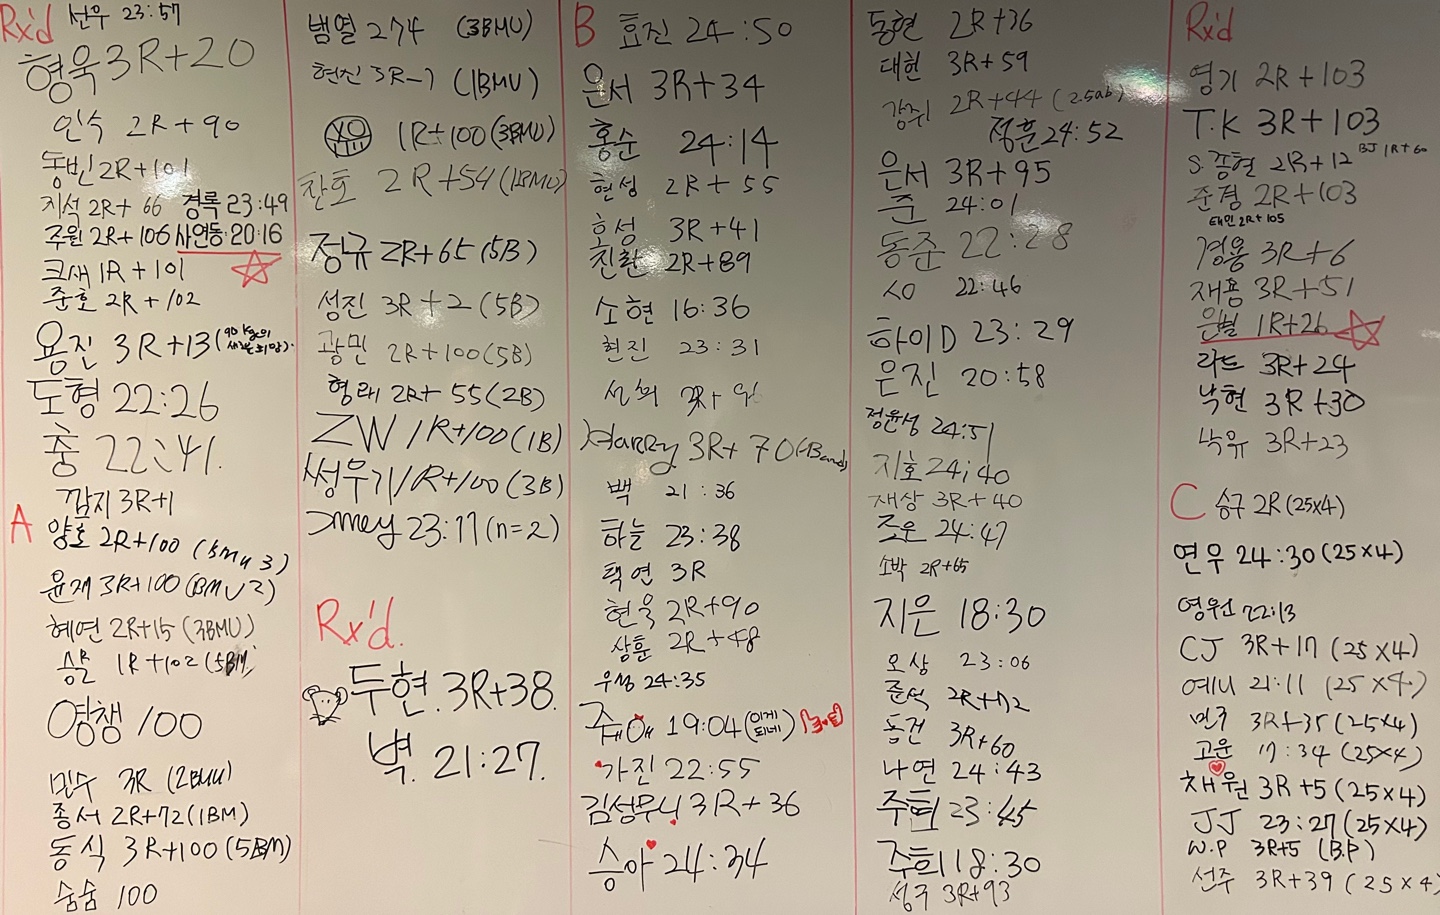 Rx'd 선우 23:57
형욱 3R+20
인수 2R+90
동빈 2R+101
지석 2R+66 경록 23:49
주원 2R+106 사연동:20:16
크새 1R+101
준호 2R+102
용진 3R+13 (90kg의
도형 22:26
충 22:41.
깜지 3R+1
A 양호 2R+100 (BMU 3)
윤재 3R+100 (BMU 2)
혜연 2R+15 (3BMU)
1R+102 (5BM)
영챙 100
민수 3R (2BMU)
종서 2R+72 (1BM)
동식 3R+100 (5BM)
숨숨 100
범열 274 (3BMU)
현진 3R-7 (1BMU)
YO 1R+100 (3BMU)
찬호 2R+54 (1BMU)
정규 2R+65 (5B)
성진 3R+2 (5B)
광민 2R+100 (5B)
형래 2R+55 (2B)
ZW 1R+100 (1B)
썽우기 1R+100 (3B)
23:17 (n=2)
Rx'd.
두현. 3R+38.
벽. 21:27.
B 효진 24:50
은서 3R+34
홍순 24:14
현성 2R+55
효성 3R+41
진환 2R+89
소현 16:36
현진 23:31
선희
Harry 3R+70 (1Band)
백 21:36
하늘 23:38
택연 3R
현욱 2R+90
상훈 2R+48
우성 24:35
쥬애 19:04 (이게 되네)
가진 22:55
김성무니 3R+36
승아 24:34
동현 2R+36
대현 3R+59
강쥐 2R+44 (2.5ab)
정훈 24:52
은서 3R+95
준 24:01
동준 22:28
SO 22:46
하이D 23:29
은진 20:58
정윤성 24:51
지호 24:40
재상 3R+40
조운 24:47
소박 2R+65
지은 18:30
오상 23:06
준석 2R+72
동건 3R+60
나연 24:43
주희 23:45
주희 18:30
성구 3R+93
Rx'd
영기 2R+103
T.K 3R+103
BJ 1R+60
S.종현 2R+12
준경 2R+103
태민 2R+105
경용 3R+6
재홍 3R+51
은별 1R+26
라트 3R+24
낙현 3R+30
낙유 3R+23
C 승구 2R (25x4)
연우 24:30 (25x4)
영원 22:13
CJ 3R+17 (25x4)
예니 21:11 (25x4)
민구 3R+35 (25x4)
고운 17:34 (25x4)
채원 3R+5 (25x4)
JJ 23:27 (25x4)
W.P 3R+5 (B.P)
선주 3R+39 (25x4)